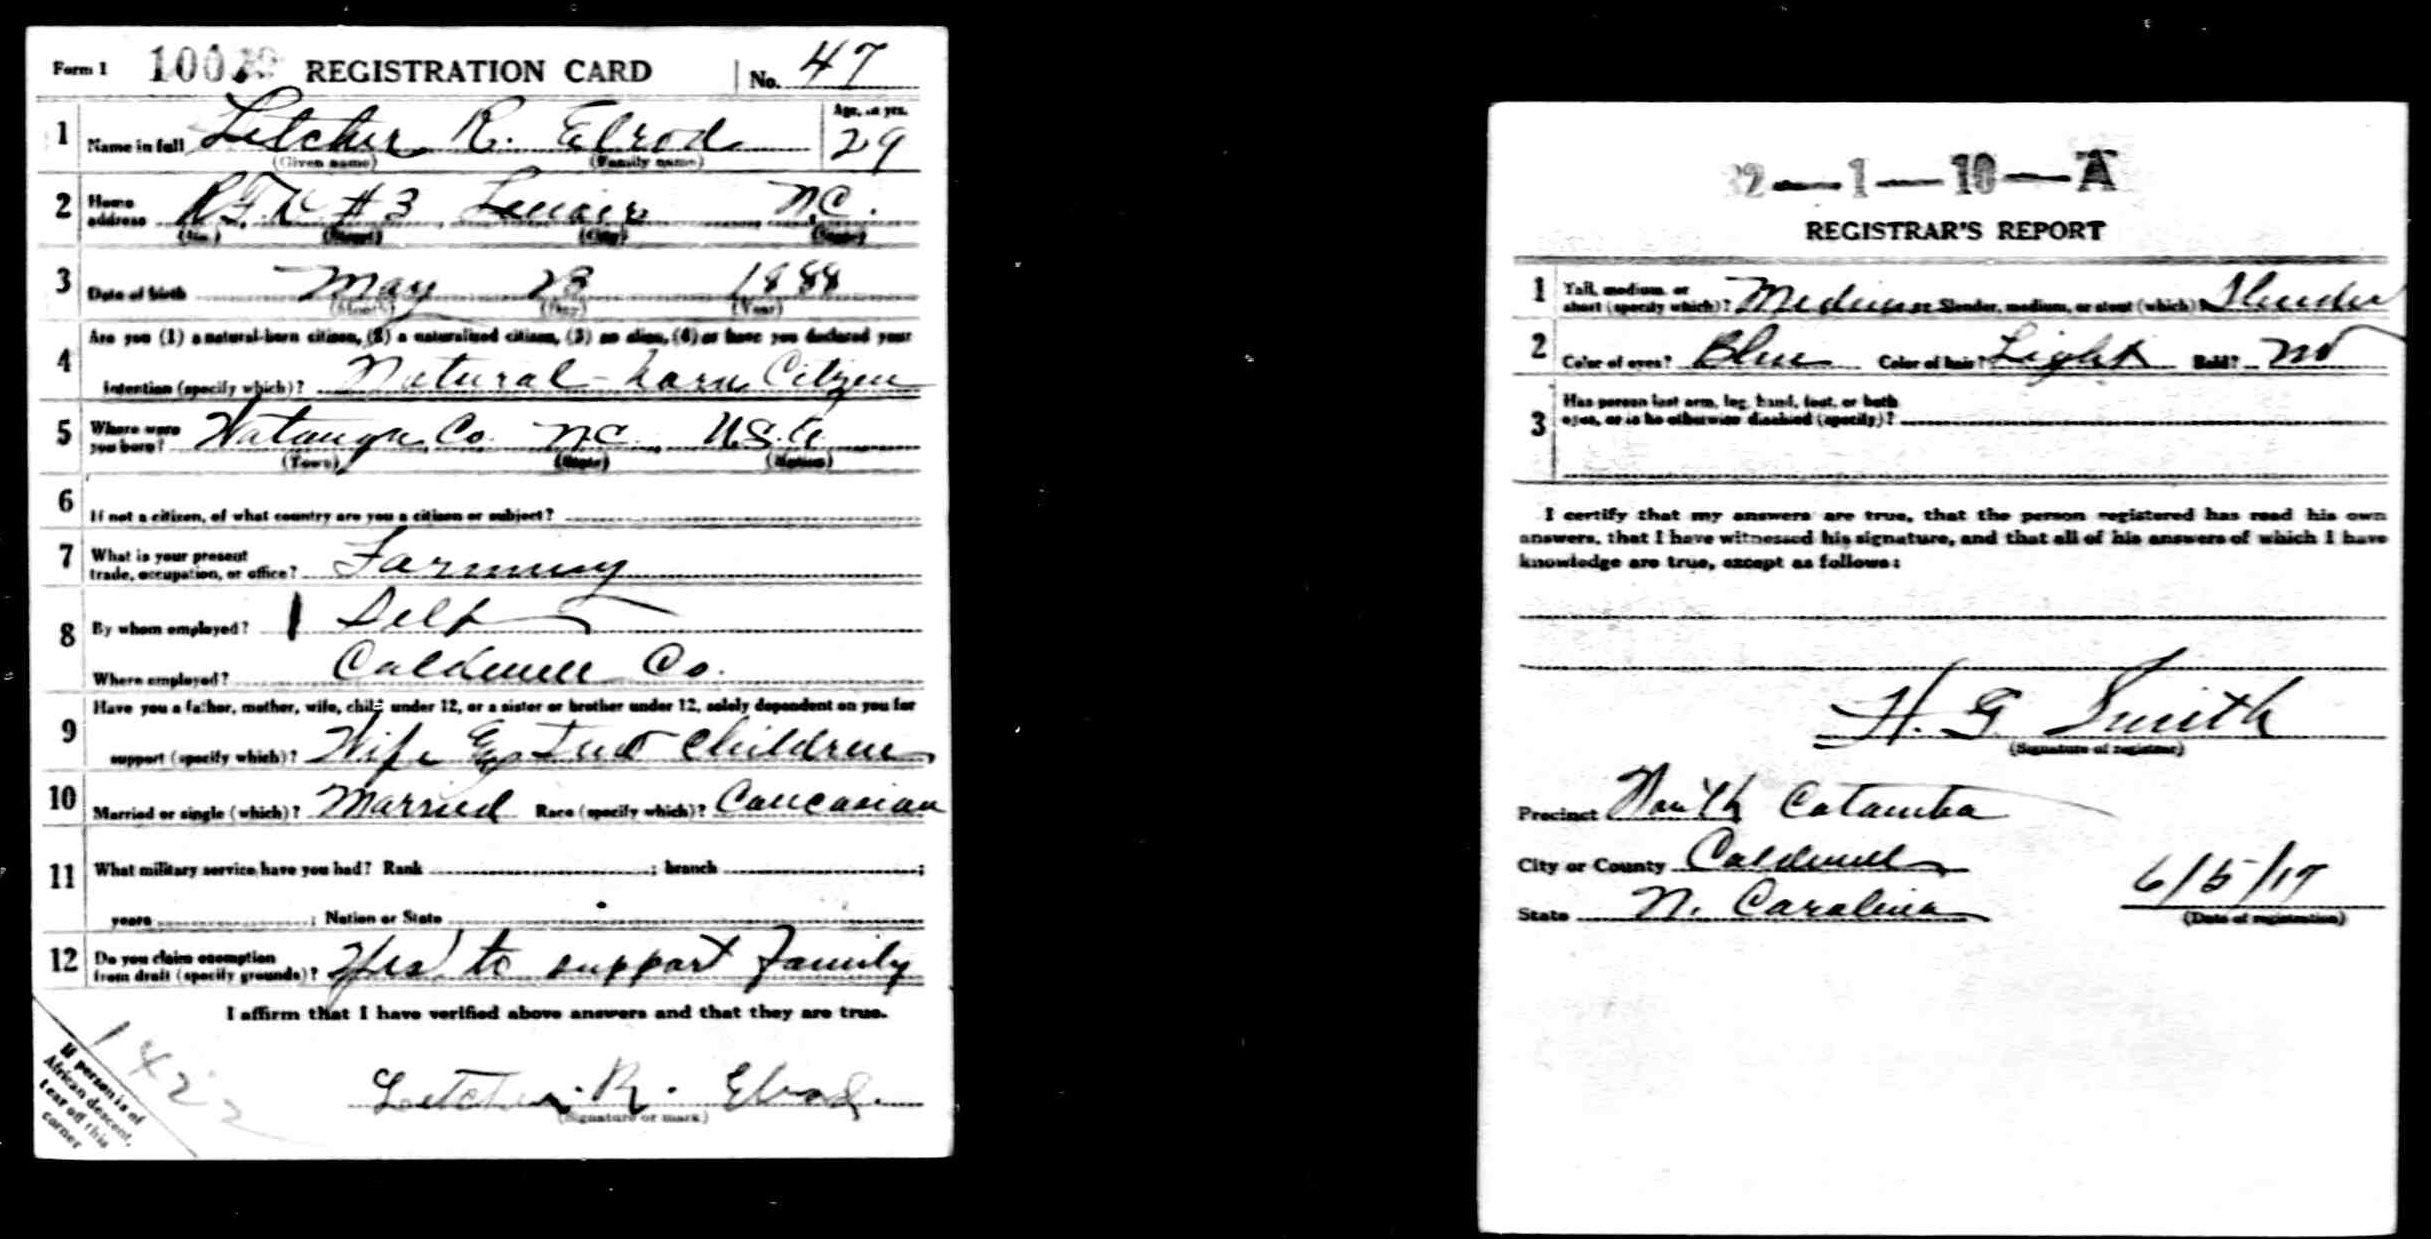 Form 1 REGISTRATION CARD No. 47
1 Name in full Letcher R. Elrod Age, in yrs. 29
(Given name) (Family name)
2 Home address R.F.D. #3 Lenoir N.C.
(No.) (Street) (City) (State)
3 Date of birth May 23 1888
(Month) (Day) (Year)
4 Are you (1) a natural-born citizen, (2) a naturalized citizen, (3) an alien, (4) or have you declared your
intention (specify which)? Natural-born Citizen
5 Where were you born? Watauga Co. N.C. U.S.A
(Town) (State) (Nation)
6 If not a citizen, of what country are you a citizen or subject?
7 What is your present trade, occupation, or office? Farming
8 By whom employed? Self
Where employed? Caldwell Co.
9 Have you a father, mother, wife, child under 12, or a sister or brother under 12, solely dependent on you for
support (specify which)? Wife & Two Children
10 Married or single (which)? Married Race (specify which)? Caucasian
11 What military service have you had? Rank ; branch ;
years ; Nation or State
12 Do you claim exemption from draft (specify grounds)? Yes to support Family
I affirm that I have verified above answers and that they are true.
Letcher R. Elrod
(Signature or mark)
If person is of
African descent,
tear off this
corner
1422
2—1—10—A
REGISTRAR'S REPORT
1 Tall, medium, or short (specify which)? Medium Slender, medium, or stout (which)? Slender
2 Color of eyes? Blue Color of hair? Light Bald? No
3 Has person lost arm, leg, hand, foot, or both
eyes, or is he otherwise disabled (specify)?
I certify that my answers are true, that the person registered has read his own
answers, that I have witnessed his signature, and that all of his answers of which I have
knowledge are true, except as follows:
H. G. Smith
(Signature of registrar)
Precinct North Catawba
City or County Caldwell
State N. Carolina 6/5/17
(Date of registration)